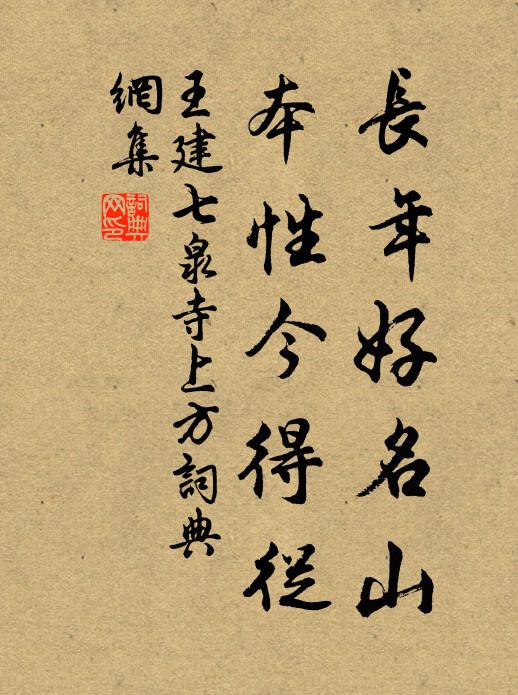 長年好名山
本性今得從
王建七泉寺上方詞典
網集
詞典网印